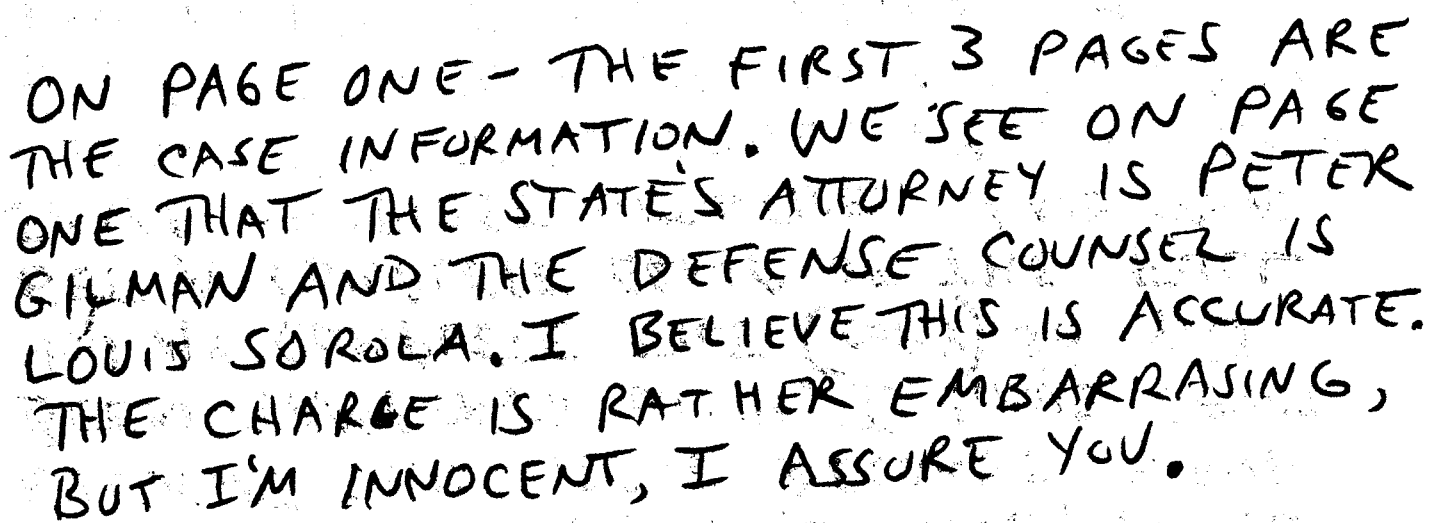 ON PAGE ONE - THE FIRST 3 PAGES ARE
THE CASE INFORMATION. WE SEE ON PAGE
ONE THAT THE STATE'S ATTORNEY IS PETER
GILMAN AND THE DEFENSE COUNSEL IS
LOUIS SOROLA. I BELIEVE THIS IS ACCURATE.
THE CHARGE IS RATHER EMBARRASING,
BUT I'M INNOCENT, I ASSURE YOU.